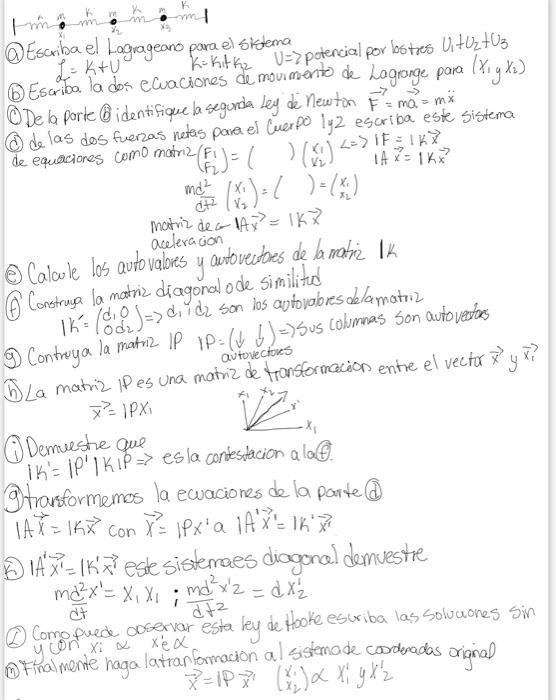 m K m K m K
x₁ x₂ x₃
ⓐ Escriba el Lagrageano para el sistema
L = K+U K=K₁+K₂ U=> potencial por los tres U₁+U₂+U₃
ⓑ Escriba la dos ecuaciones de movimiento de Lagrange para (X₁ y X₂)
ⓒ De la parte ⓑ identifique la segunda Ley de Newton F⃗ = ma⃗ = mẍ
ⓓ de las dos fuerzas netas para el Cuerpo 1 y 2 escriba este sistema
de equaciones como matriz (F₁ F₂) = ( ) (X₁ X₂) <=> IF = IK x⃗
IA x⃗ = IK x⃗
md²/dt² (X₁ X₂) = ( ) = (X₁ X₂)
matriz de IA x⃗ = IK x⃗
aceleracion
ⓔ Calcule los autovalores y autovectores de la matriz IK
ⓕ Construya la matriz diagonal o de similitud
IK' = (d₁ 0 0 d₂) => d₁ i d₂ son los autovalores de la matriz
ⓖ Contruya la matriz IP IP = (↓ ↓) => Sus columnas son autovectores
autovectores
ⓗ La matriz IP es una matriz de transformacion entre el vector x⃗ y x⃗'
x⃗ = IPX₁
x₁ x₂ x' X₁
ⓘ Demuestre que
IK' = IP' IK IP => es la contestacion a la ⓕ.
ⓖ transformemos la ecuaciones de la parte ⓓ
IA x⃗ = IK x⃗ con x⃗ = IP x' a IA' x⃗' = IK' x⃗'
ⓚ IA' x⃗' = IK' x⃗' este sistema es diagonal demuestre
md²x'/dt = X₁ X₁ ; md²x'2/dt2 = dX'₂
ⓛ Como puede observar esta ley de Hooke escriba las soluciones sin
y con X'₁ α x'₂ α
ⓜ Finalmente haga la tranformacion al sistema de coordenadas original
x⃗ = IP x⃗' (X₁ X₂) α X'₁ y X'₂